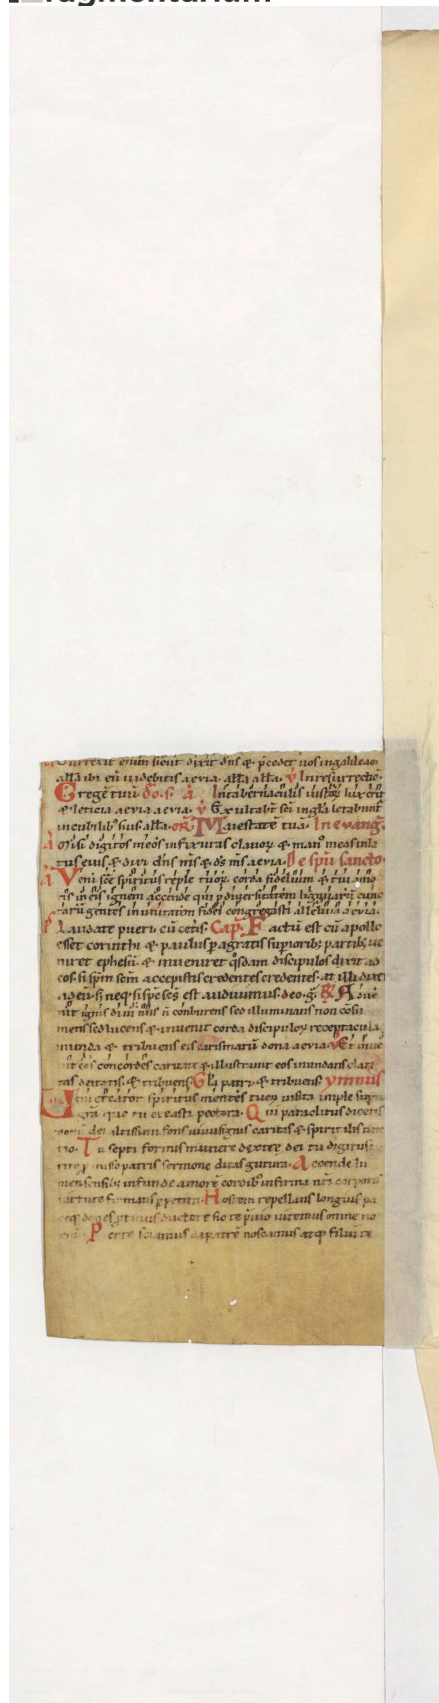 Fragmentarium
surrexit enim sicut dixit dn̄s & p̄cedet uos in galileaa
alla ibi eū uidebitis aeuia alla alla. ṽ In resurrectio.
Eregē tuū do. si a In tabernaculis iustoꝝ lux orit
& leticia aeuia aeuia. ṽ Exultabt sc̄i in gla letabunt
in cubilibꝰ suis alla. or̄. Maiestatē tuā. In euanḡ.
Misi digitos meos in fixuras clauoꝝ & manū meā in la
tus eius & dixi dn̄s m̄s & ds m̄s aeuia. De sp̄u sancto.
A Veni sc̄e spiritus reple tuoꝝ corda fidelium & tui amo
ris in eis ignem accende qui p diuersitatem linguarū cunc
tarū gentes in unitatem fidei congregasti alleluia aeuia.
Laudate pueri cū cetis. Cap. Factū est cū apollo
esset corinthi & paulus pagratis supioribꝫ partibꝫ ue
niret ephesū & inueniret qͦsdam discipulos dixit ad
eos. si sp̄m sc̄m accepistis credentes credentes. at illi dixer
ad eū. sꝫ neqꝫ si sp̄c sc̄s est audiuimus. deo. ḡ. R̃ Adue
nit ignis diuinus n̄ conburens sed illuminans non cosu
mens sed lucens & inuenit corda discipuloꝝ receptacula
munda & tribuens eis carismatū dona aeuia. ṽ Et inue
nit eos concordes caritate & illustrauit eos inundans clari
tas deitatis. & tribuens. Gla patri. & tribuens. ymnus
Veni creator spiritus mentes tuoꝝ uisita imple supna
gr̄a que tu creasti pectora. Qui paraclitus diceris
donū dei altissimi fons uiuus ignis caritas & spiritalis unc
tio. Tu septi formis munere dextre dei tu digitus
rite pmisso patris sermone ditas gutura. Accende lu
men sensibꝫ infunde amorē cordibꝫ infirma nr̄i corporis
uirtute firmans ppetim. Hostem repellans longius pa
ceqꝫ dones ptinus ductore sic te p̄uio uitemus omne no
xiū. Per te sciamus da patrē noscamus atqꝫ filiū te